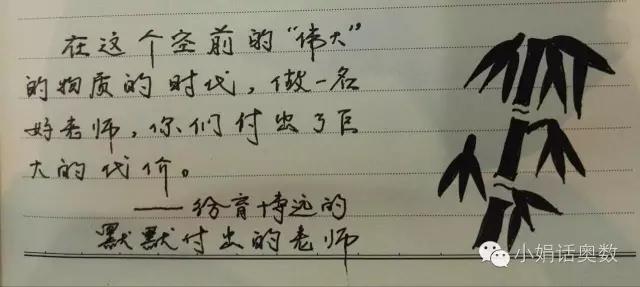 在这个空前的“伟大”
的物质的时代，做一名
好老师，你们付出了巨
大的代价。
——给育博远的
默默付出的老师
小娟话奥数